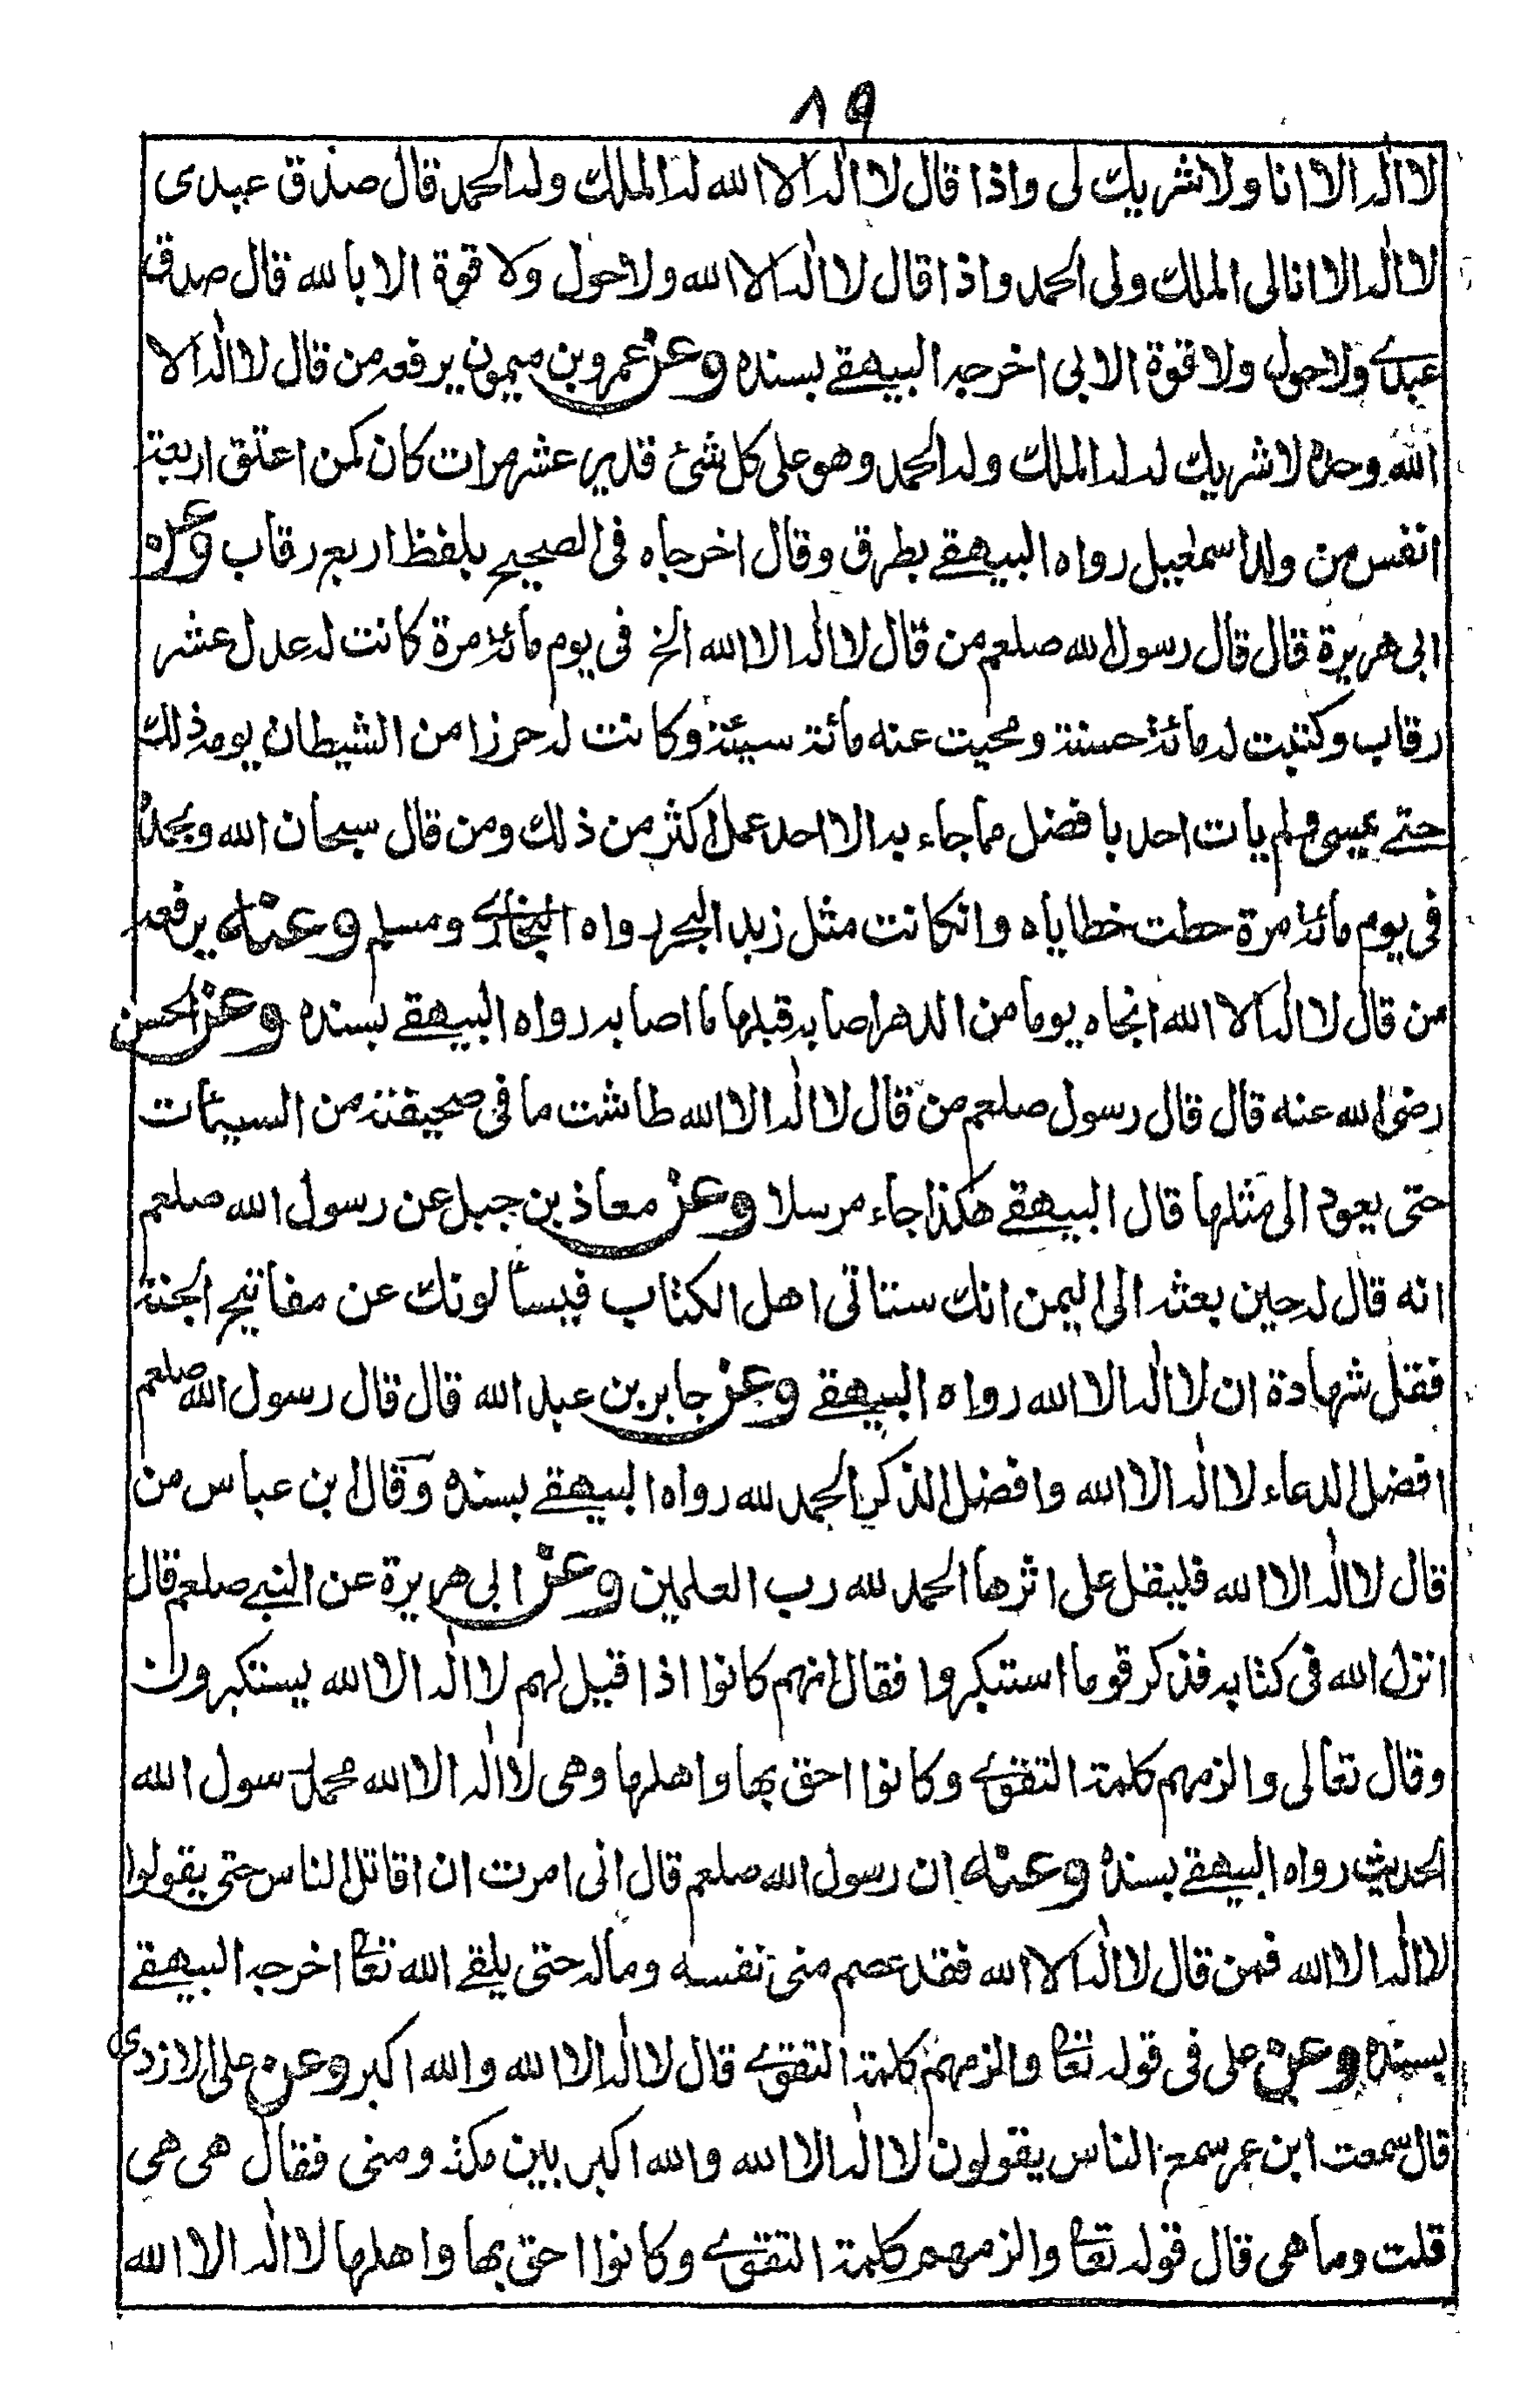 ٨٩
لا اله الا انا ولا شريك لى واذا قال لا اله الا الله له الملك وله الحمد قال صدق عبدى
لا اله الا انا لى الملك ولى الحمد واذا قال لا اله الا الله ولا حول ولا قوة الا بالله قال صدق
عبدے ولا حول ولا قوة الا بى اخرجه البيهقے بسنده وعن عمرو بن ميمون يرفعه من قال لا اله الا
الله وحده لا شريك له له الملك وله الحمد وهو على كل شئ قدير عشر مرات كان كمن اعتق اربعة
انفس من ولد اسمعيل رواه البيهقے بطرق وقال اخرجاه فى الصحيح بلفظ اربع رقاب وعن
ابى هريرة قال قال رسول الله صلعم من قال لا اله الا الله الخ فى يوم مائة مرة كانت له عدل عشر
رقاب وكتبت له مائة حسنة ومحيت عنه مائة سيئة وكانت له حرزا من الشيطان يومه ذلك
حتے يمسى ولم يات احد بافضل مما جاء به الا احد عمل اكثر من ذلك ومن قال سبحان الله وبحمده
فى يوم مائة مرة حطت خطاياه وانكانت مثل زبد البحر رواه البخارى ومسلم وعنه يرفعه
من قال لا اله الا الله انجاه يوما من الدهر اصابه قبلها ما اصابه رواه البيهقے بسنده وعن الحسن
رضى الله عنه قال قال رسول صلعم من قال لا اله الا الله طاشت ما فى صحيفته من السيئات
حتى يعود الى مثلها قال البيهقے هكذا جاء مرسلا وعن معاذ بن جبل عن رسول الله صلعم
انه قال له حين بعثه الى اليمن انك ستاتى اهل الكتاب فيسألونك عن مفاتيح الجنة
فقل شهادة ان لا اله الا الله رواه البيهقے وعن جابر بن عبد الله قال قال رسول الله صلعم
افضل الدعاء لا اله الا الله وافضل الذكر الحمد لله رواه البيهقے بسنده وقال ابن عباس من
قال لا اله الا الله فليقل على اثرها الحمد لله رب العلمين وعن ابى هريرة عن النبے صلعم قال
انزل الله فى كتابه فذكر قوما استتكبروا فقال انهم كانوا اذا قيل لهم لا اله الا الله يستكبرون
وقال تعالى والزمهم كلمة التقوے وكانوا احق بها واهلها وهى لا اله الا الله محمد رسول الله
الحديث رواه البيهقے بسنده وعنه ان رسول الله صلعم قال انى امرت ان اقاتل الناس حتى يقولوا
لا اله الا الله فمن قال لا اله الا الله فقد عصم منى نفسه وماله حتى يلقے الله تعا اخرجه البيهقے
بسنده وعن على فى قوله تعا والزمهم كلمة التقوے قال لا اله الا الله والله اكبر وعن على الازدى
قال سمعت ابن عمر سمع الناس يقولون لا اله الا الله والله اكبر بين مكة ومنى فقال هى هى
قلت وما هى قال قوله تعا والزمهم كلمة التقوے وكانوا احق بها واهلها لا اله الا الله